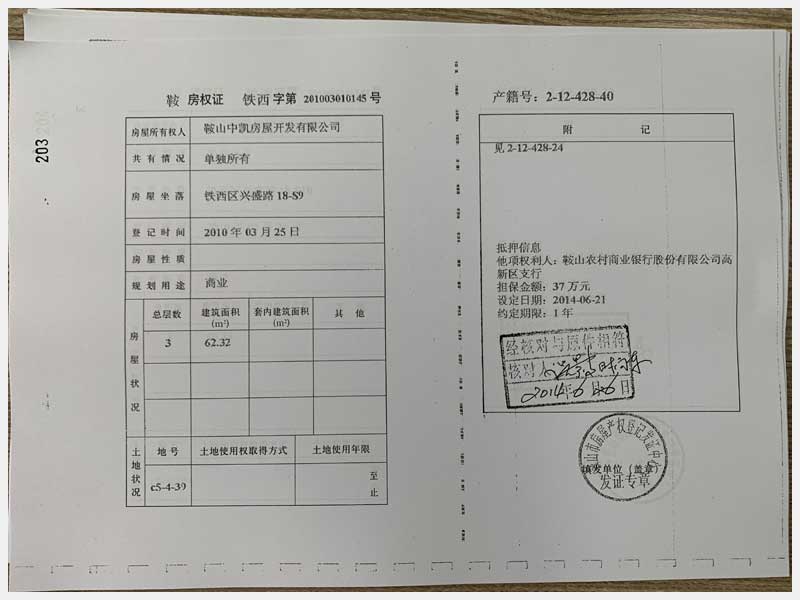 203
鞍 房权证 铁西 字第 201003010145 号
房屋所有权人 鞍山中凯房屋开发有限公司
共有情况 单独所有
房屋坐落 铁西区兴盛路 18-S9
登记时间 2010 年 03 月 25 日
房屋性质
规划用途 商业
房屋状况
总层数 建筑面积(m²) 套内建筑面积(m²) 其他
3 62.32
土地状况
地号 土地使用权取得方式 土地使用年限
c5-4-39 至
止
产籍号：2-12-428-40
附 记
见 2-12-428-24
抵押信息
他项权利人：鞍山农村商业银行股份有限公司高
新区支行
担保金额：37 万元
设定日期：2014-06-21
约定期限：1 年
经核对与原件相符
核对人
2014年6月26日
鞍山市房屋产权登记发证中心
填发单位（盖章）
发证专章